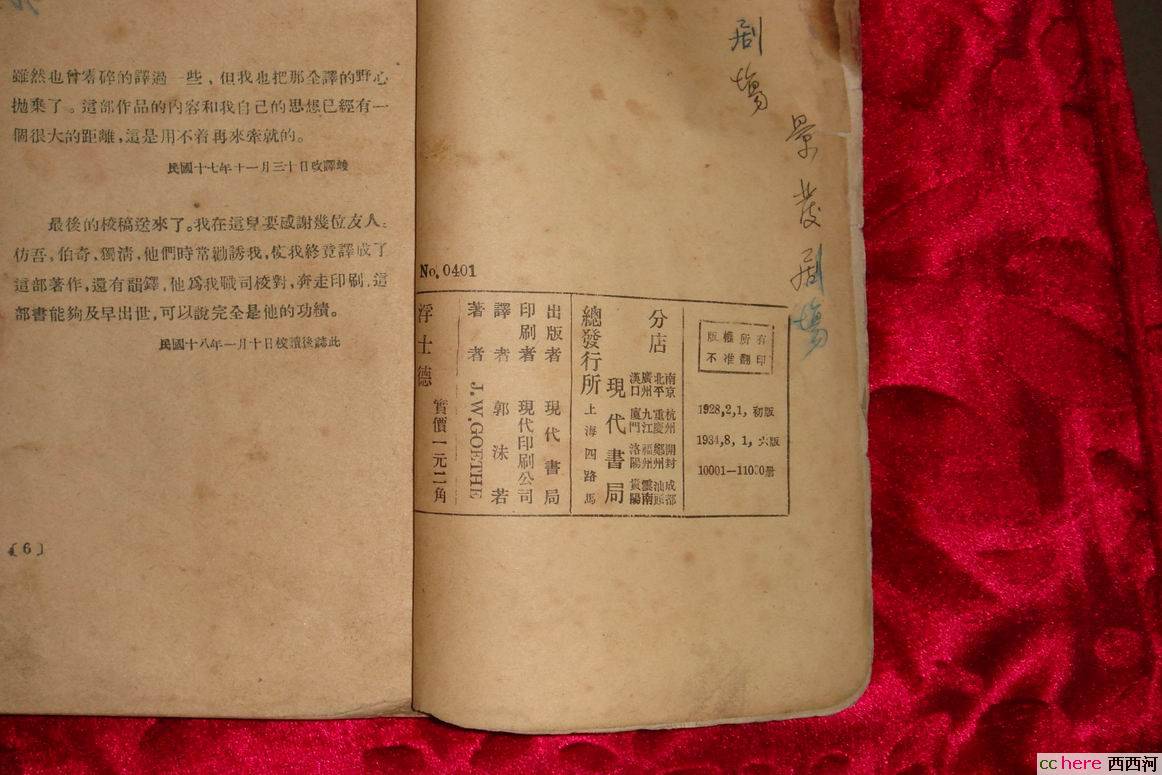 雖然也曾零碎的譯過一些，但我也把那全譯的野心
拋棄了。這部作品的內容和我自己的思想已經有一
個很大的距離，這是用不着再來牽就的。
民國十七年十一月三十日改譯竣
最後的校稿送來了。我在這兒要感謝幾位友人：
仿吾，伯奇，獨清，他們時常勸誘我，使我終竟譯成了
這部著作，還有韻鐸，他爲我職司校對，奔走印刷，這
部書能夠及早出世，可以說完全是他的功績。
民國十八年一月十日校讀後誌此
〔6〕
剧場
景
剧場
No. 0401
版權所有
不准翻印
1928,2,1, 初版
1934,8, 1, 六版
10001—11000册
分店
南京 北平 廣州 漢口
杭州 重慶 九江 廈門
開封 鄭州 福州 洛陽
成都 汕頭 雲南 貴陽
總發行所 現代書局
上海四路馬
出版者 現代書局
印刷者 現代印刷公司
譯者 郭沫若
著者 J.W.GOETHE
浮士德 實價一元二角
cchere 西西河